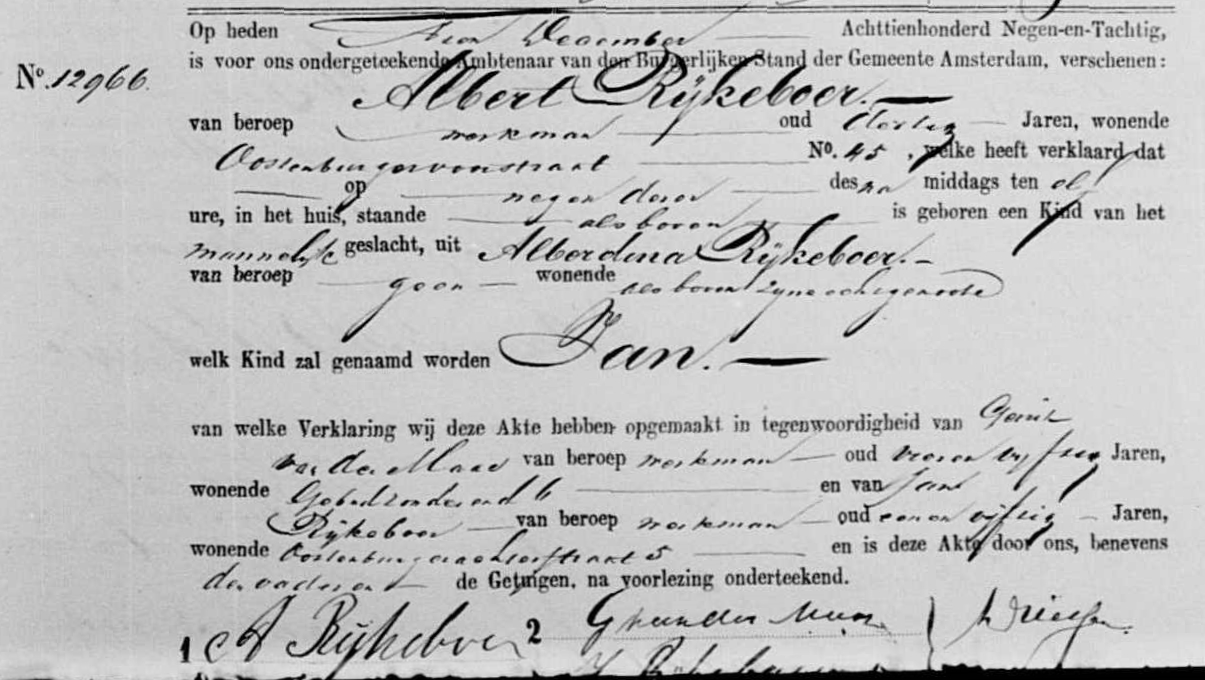 Op heden Tien December Achttienhonderd Negen-en-Tachtig,
is voor ons ondergeteekende Ambtenaar van den Burgerlijken Stand der Gemeente Amsterdam, verschenen:
No. 12966.
Albert Rijkeboer.
van beroep werkman oud dertig Jaren, wonende
Oostenburgervoorstraat No. 45, welke heeft verklaard dat
op negen dezer des na middags ten elf
ure, in het huis, staande als boven is geboren een Kind van het
mannelijk geslacht, uit Alberdina Rijkeboer.
van beroep geen wonende als boven zijne echtgenoote
welk Kind zal genaamd worden Jan.
van welke Verklaring wij deze Akte hebben opgemaakt in tegenwoordigheid van Gerrit
van der van beroep werkman oud vyftig Jaren,
wonende 6 en van Jan
Rijkeboer van beroep werkman oud een en vijftig Jaren,
wonende Oostenburgerachterstraat 5 en is deze Akte door ons, benevens
den vader en de Getuigen, na voorlezing onderteekend.
1 A Rijkeboer 2 G van der